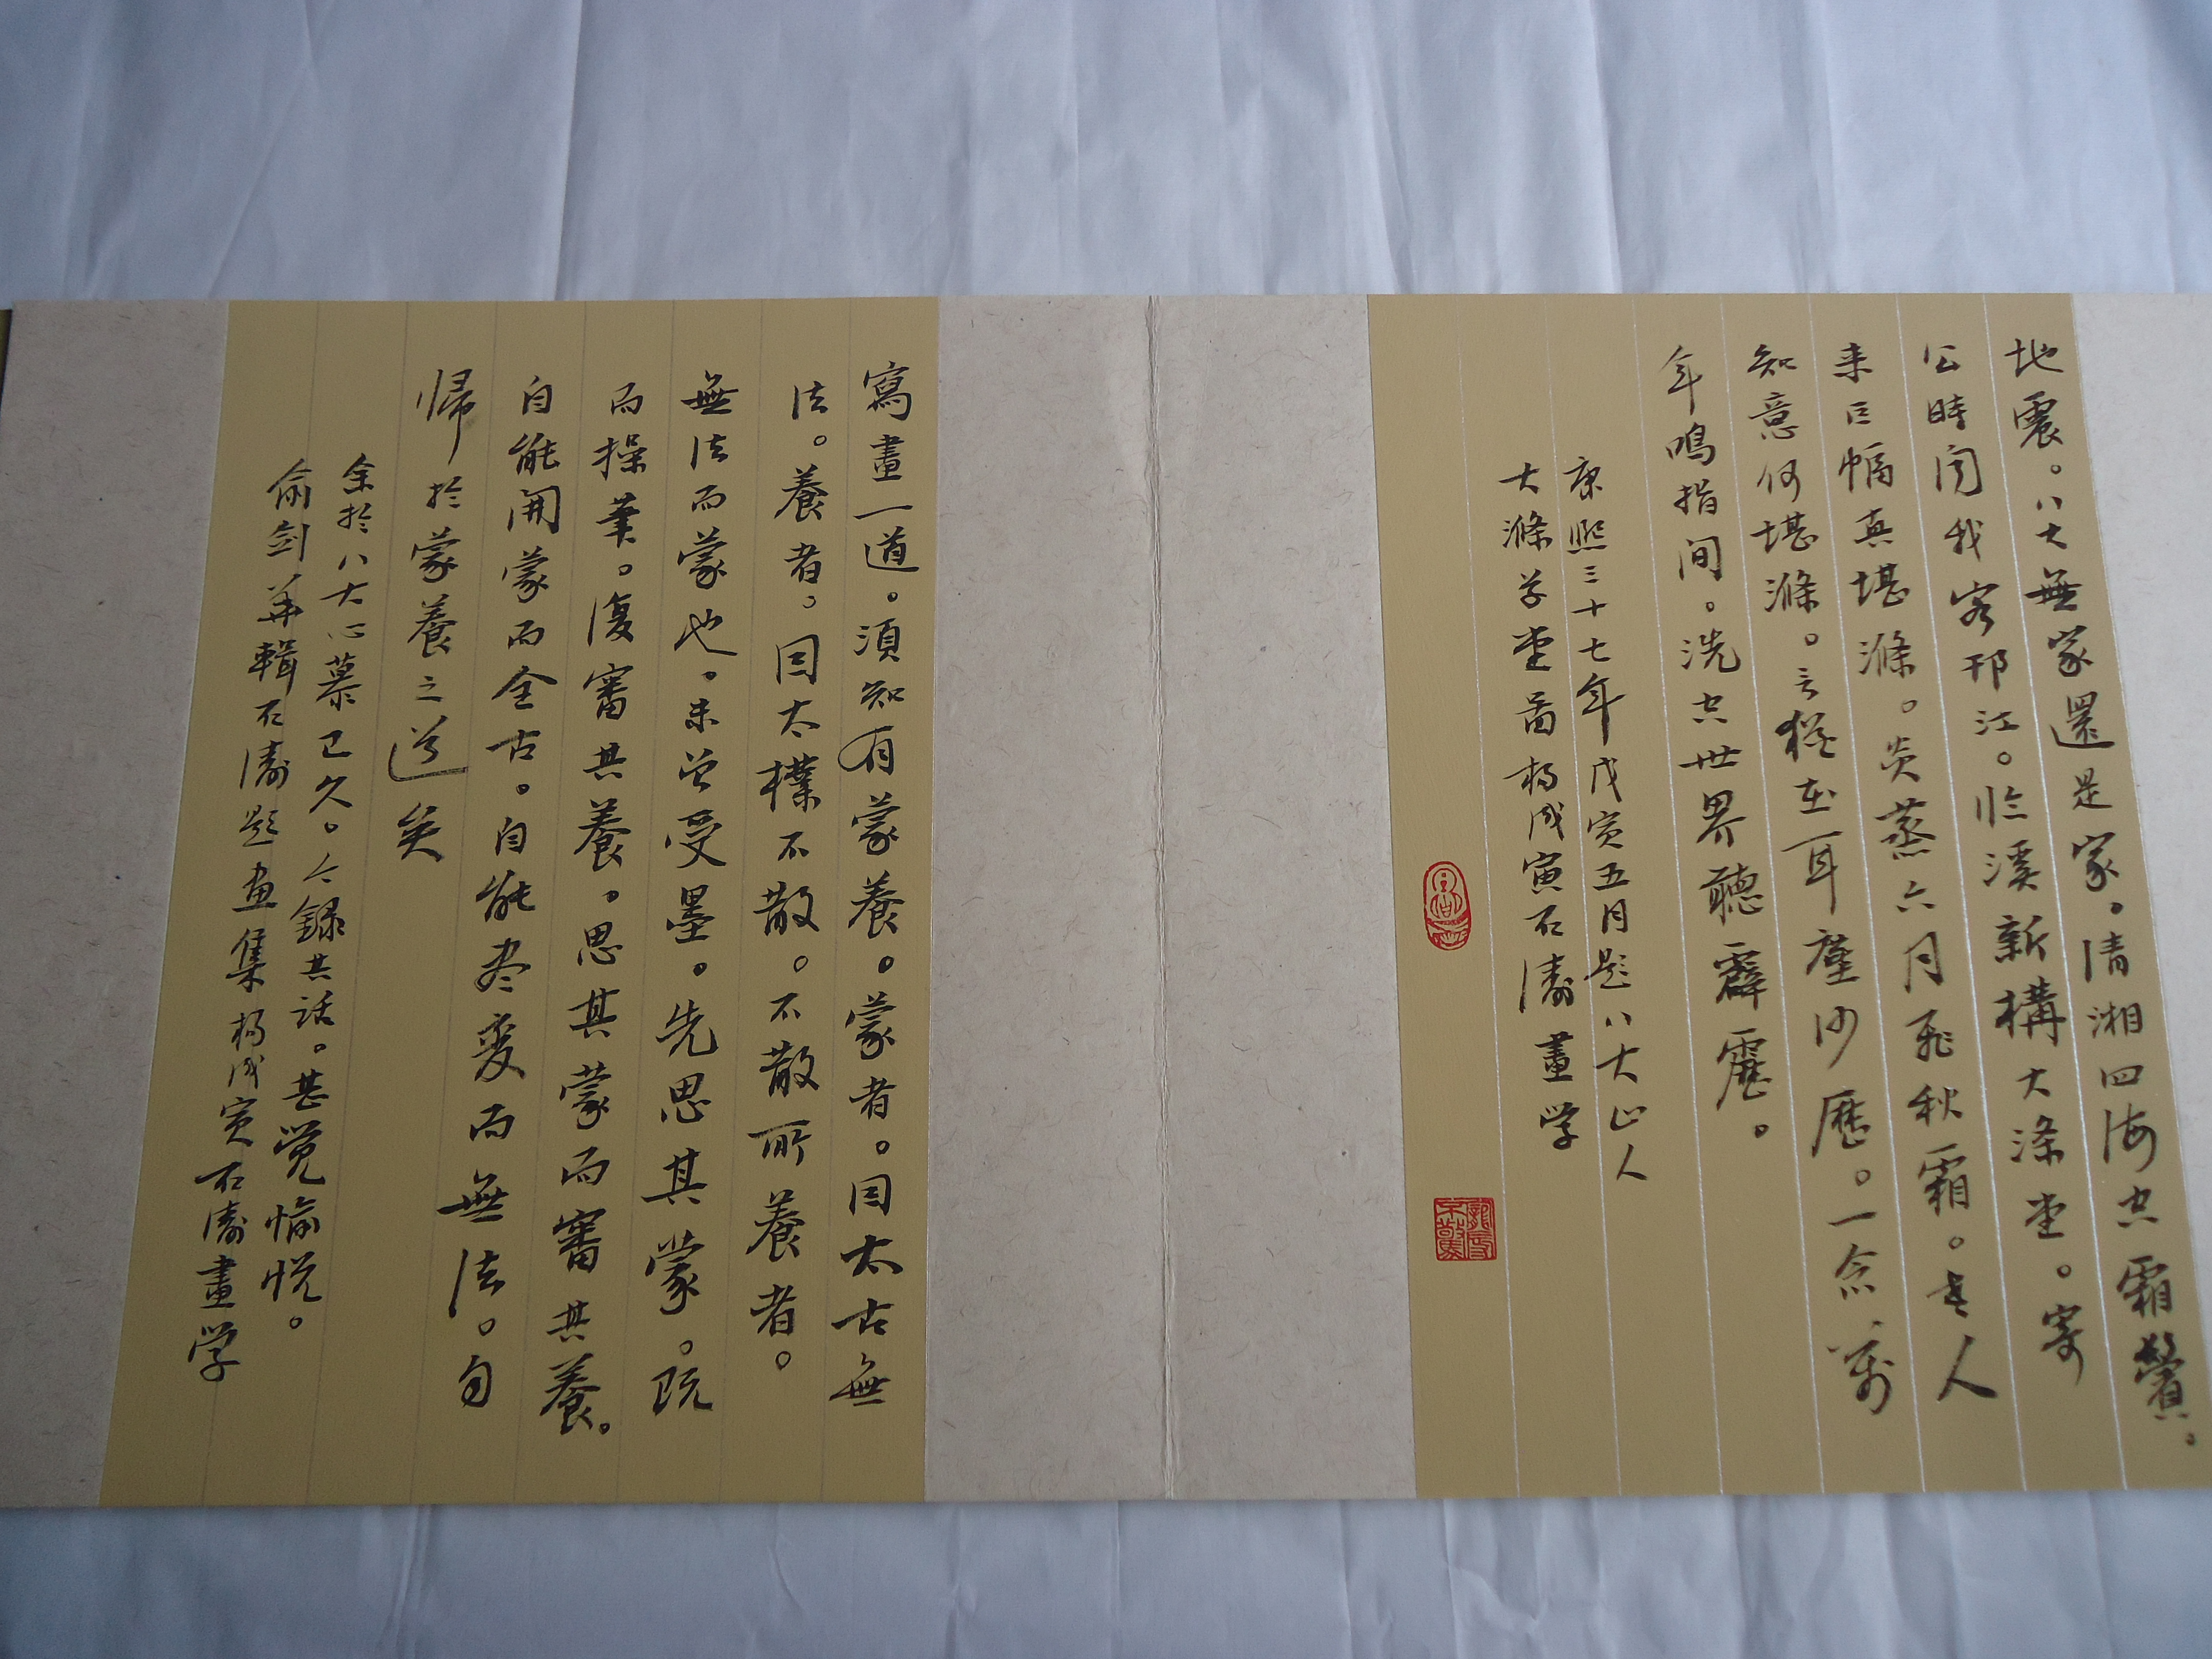 地震。八大無家還是家。清湘四海空霜鬢。
公時聞我客邗江。臨溪新構大滌堂。寄
来巨幅真堪滌。炎蒸六月飛秋霜。老人
知意何堪滌。言猶在耳塵沙歷。一念萬
年鳴指間。洗空世界聽霹靂。
康熙三十七年戊寅五月題八大山人
大滌草堂圖楊成寅石濤畫学
寫畫一道。須知有蒙養。蒙者。因太古無
法。養者。因太樸不散。不散所養者。
無法而蒙也。未曾受墨。先思其蒙。既
而操筆。復審其養。思其蒙而審其養。
自能開蒙而全古。自能尽変而無法。自
帰於蒙養之道矣
余於八大心慕已久。今録其話。甚覚愉悦。
俞剑華輯石濤題画集楊成寅石濤畫学